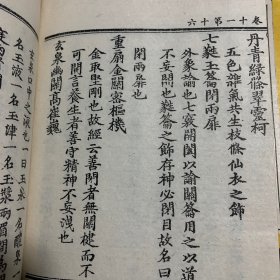 卷十一第十六
丹青綠條翠靈柯
五色雜氣共生枝條仙衣之飾
七蕤玉籥閉兩扉
外象諭也七竅開闔以諭關籥用之以道
不妄開也蕤籥之飾存神必閉目故名曰
閉兩扉也
重扇金關密樞機
金取堅剛也故經云善閉者無關楗而不
可開言養生者善守精神不妄洩也
玄泉幽闕高崔巍
玄泉口中之液也一曰玉泉一名醴泉
一名玉液一名玉津一名玉漿兩眉間